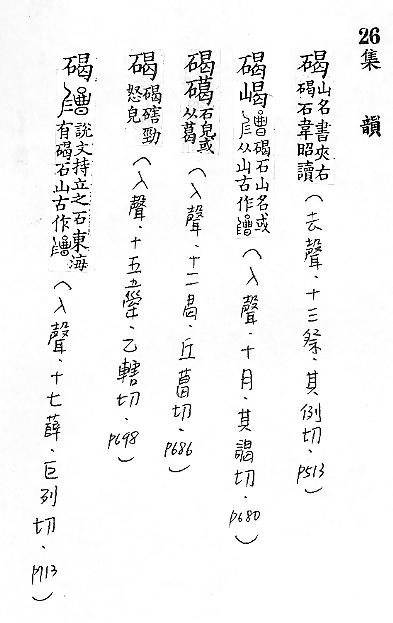 26
集韻
碣山名書夾右碣石韋昭讀（去聲．十三祭．其例切．P513）
碣嵑碣石山名或从山古作（入聲．十月．其謁切．P680）
碣礍石皃或从葛（入聲．十二曷．丘葛切．P686）
碣碣䃶勁怒皃（入聲．十五舝．乙轄切．P698）
碣說文持立之石東海有碣石山古作（入聲．十七薛．巨列切．P713）